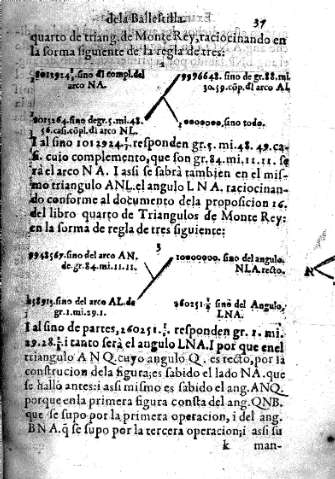 de la Ballestilla. 37
quarto de triang. de Monte Rey, raciocinando en
la forma siguiente de la regla de tres:
2
sino dl compl. del
arco NA.
9996648. sino de gr. 88. mi.
30. 59. cōp. dl arco AL
sino de gr. 5. mi. 48.
56. casi. cōp. dl arco NL.
10000000. sino todo.
I al sino 1012924. ½. responden gr. 5. mi. 48. 49. ca-
si. cuio complemento, que son gr. 84. mi. 11. 11. se
rá el arco N A. I assi se sabrà tambien en el mis-
mo triangulo ANL. el angulo L N A. raciocinan-
do conforme al documento de la proposicion 16.
del libro quarto de Triangulos de Monte Rey:
en la forma de regla de tres siguiente:
3
9948567. sino del arco AN.
de gr. 84. mi. 11. 11.
10000000. sino del angulo
NLA. recto.
sino del arco AL. de
gr. 1. mi. 29. 1.
260251. ½ sino del Angulo,
LNA.
I al sino de partes, 260251. ½. responden gr. 1. mi.
29. 28. ½. i tanto será el angulo LNA. I por que en el
triangulo A N Q. cuyo angulo Q. es recto, por la
construcion dela figura; es sabido el lado NA. que
se halló antes: i assi mismo es sabido el ang. ANQ.
porque en la primera figura consta del ang. QNB.
que se supo por la primera operacion, i del ang.
B N A. q̃ se supo por la tercera operacion; i assi su
k man-
N